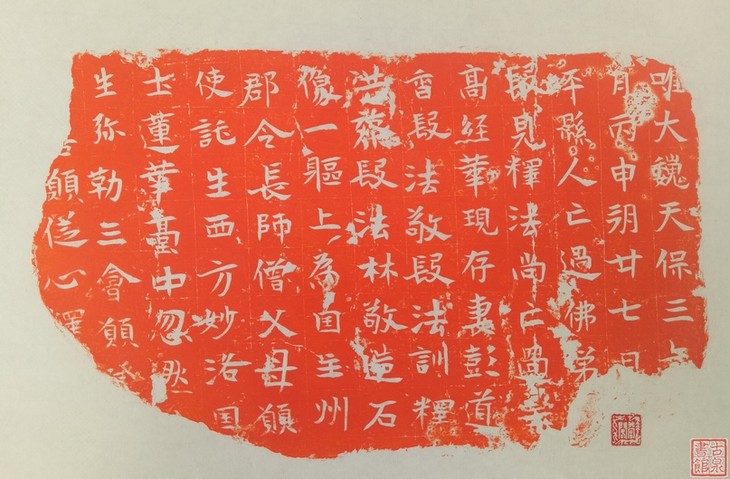 唯大魏天保三
月丙申朔廿七日
平縣人亡過佛弟
段兒釋法尚亡
髙经華現存妻彭道
香段法敬段法訓釋
段法林敬造石
像一軀上為囯主州
郡令長師僧父母願
使託生西方妙洛囯
士蓮華臺中忽
生弥勒三會願
願従心
古泉書館